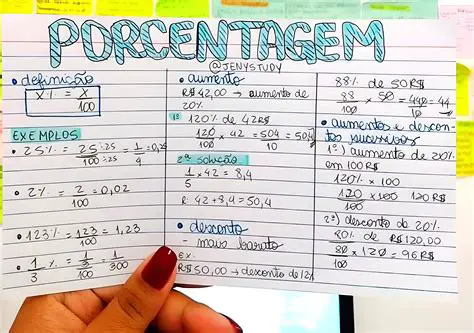 PORCENTAGEM
@JENYSTUDY
• definição
X% = X/100
EXEMPLOS
• 25% = 25:25/100:25 = 1/4 = 0,25
• 2% = 2/100 = 0,02
• 123% = 123/100 = 1,23
• 1/3 % = 1/3/100 = 1/300
• aumento
R$ 42,00 → aumento de
20%
1º 120% de 42R$
120/100 × 42 = 504/10 = 50,4
2ª solução
1/5 × 42 = 8,4
R: 42 + 8,4 = 50,4
• desconto
- mais barato
EX:
R$50,00 → desconto de 12%
88% de 50R$
88/100 × 50 = 440/10 = 44
• aumentos e descon-
tos sucessivos
1º) aumento de 20%
em 100R$
120% × 100
120/100 × 100 120R$
2º) desconto de 20%
80% de R$120,00
80/100 × 120 = 96R$